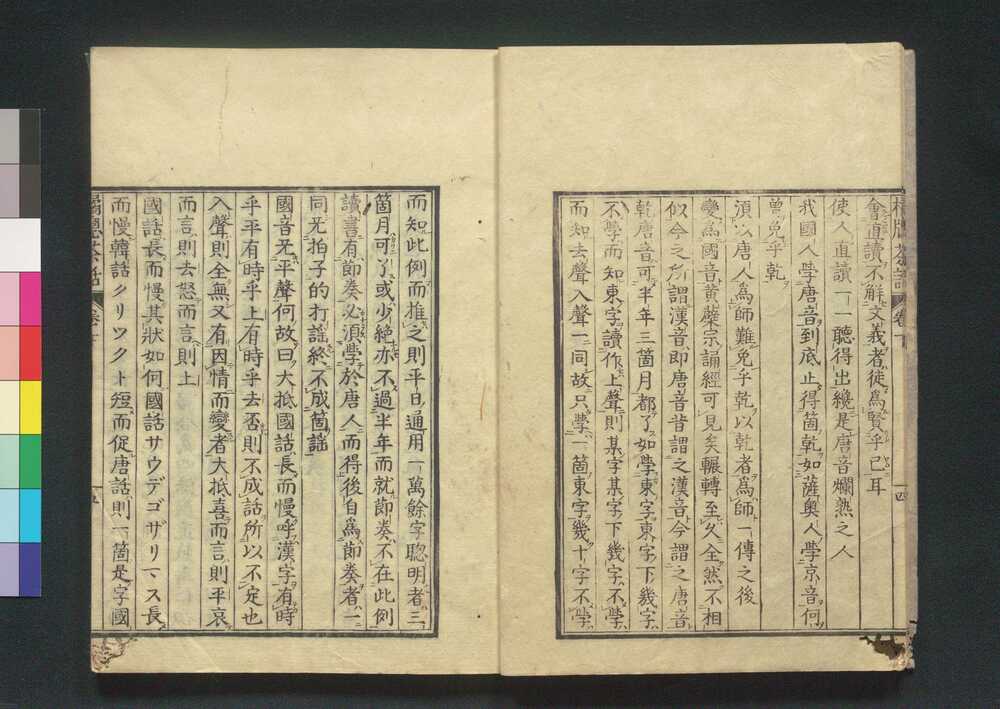 會直讀不解文義者徒爲賢乎已耳
使人直讀一一聽得出纔是唐音爛熟之人
我國人學唐音到底止得箇乾如薩奧人學京音何
曾免乎乾
須以唐人為師難免乎乾以乾者為師一傳之後
變為國音黃蘗宗誦經可見矣輾轉至久全然不相
似今之所謂漢音即唐音昔謂之漢音今謂之唐音
乾唐音可半年三箇月都了如學東字東字下幾字
不學而知東字讀作上聲則某字某字下幾字不學
而知去聲入聲一同故只學一箇東字幾十字不學
四
而知此例而推之則平日通用一萬餘字聰明者三
箇月可了或少絶亦不過半年而就節奏不在此例
讀書有節奏必須學於唐人而得後自爲節奏者一
同无拍子的打謡終不成箇謡
國音无平聲何故曰大抵國話長而慢呼漢字有時
乎平有時乎上有時乎去否則不成話所以不定也
入聲則全無又有因情而變者大抵喜而言則平哀
而言則去怒而言則上
國話長而慢其狀如何國話サウデゴザリマス長
而慢韓話クリツクト短而促唐話則一箇是字國